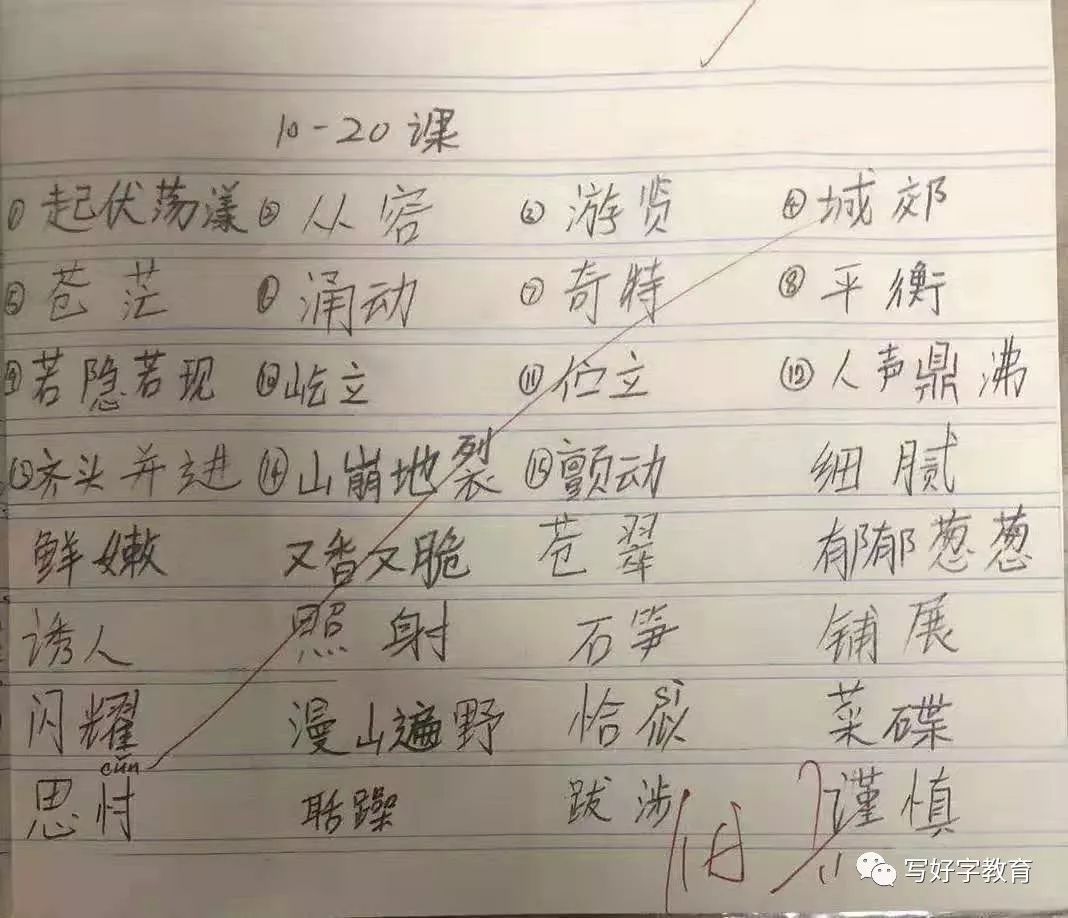 10-20课
①起伏荡漾 ②从容 ③游贤 ④城郊
⑤苍茫 ⑥涌动 ⑦奇特 ⑧平衡
⑨若隐若现 ⑩屹立 ⑪伫立 ⑫人声鼎沸
⑬齐头并进 ⑭山崩地裂 ⑮颤动 细腻
鲜嫩 又香又脆 苍翠 郁郁葱葱
诱人 照射 石笋 铺展
sì
闪耀 漫山遍野 恰似 菜碟
cǔn
思忖 聒躁 跋涉 谨慎
写好字教育